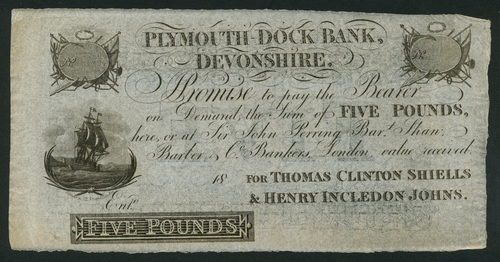 PLYMOUTH-DOCK BANK,
DEVONSHIRE.
Nº
Nº
I Promise to pay the Bearer
on Demand, the Sum of FIVE POUNDS,
here, or at Sir John Perring Bart. Shaw,
Barber, & Co. Bankers, London value received.
18
FOR THOMAS CLINTON SHIELLS
& HENRY INCLEDON JOHNS.
Entd.
FIVE POUNDS